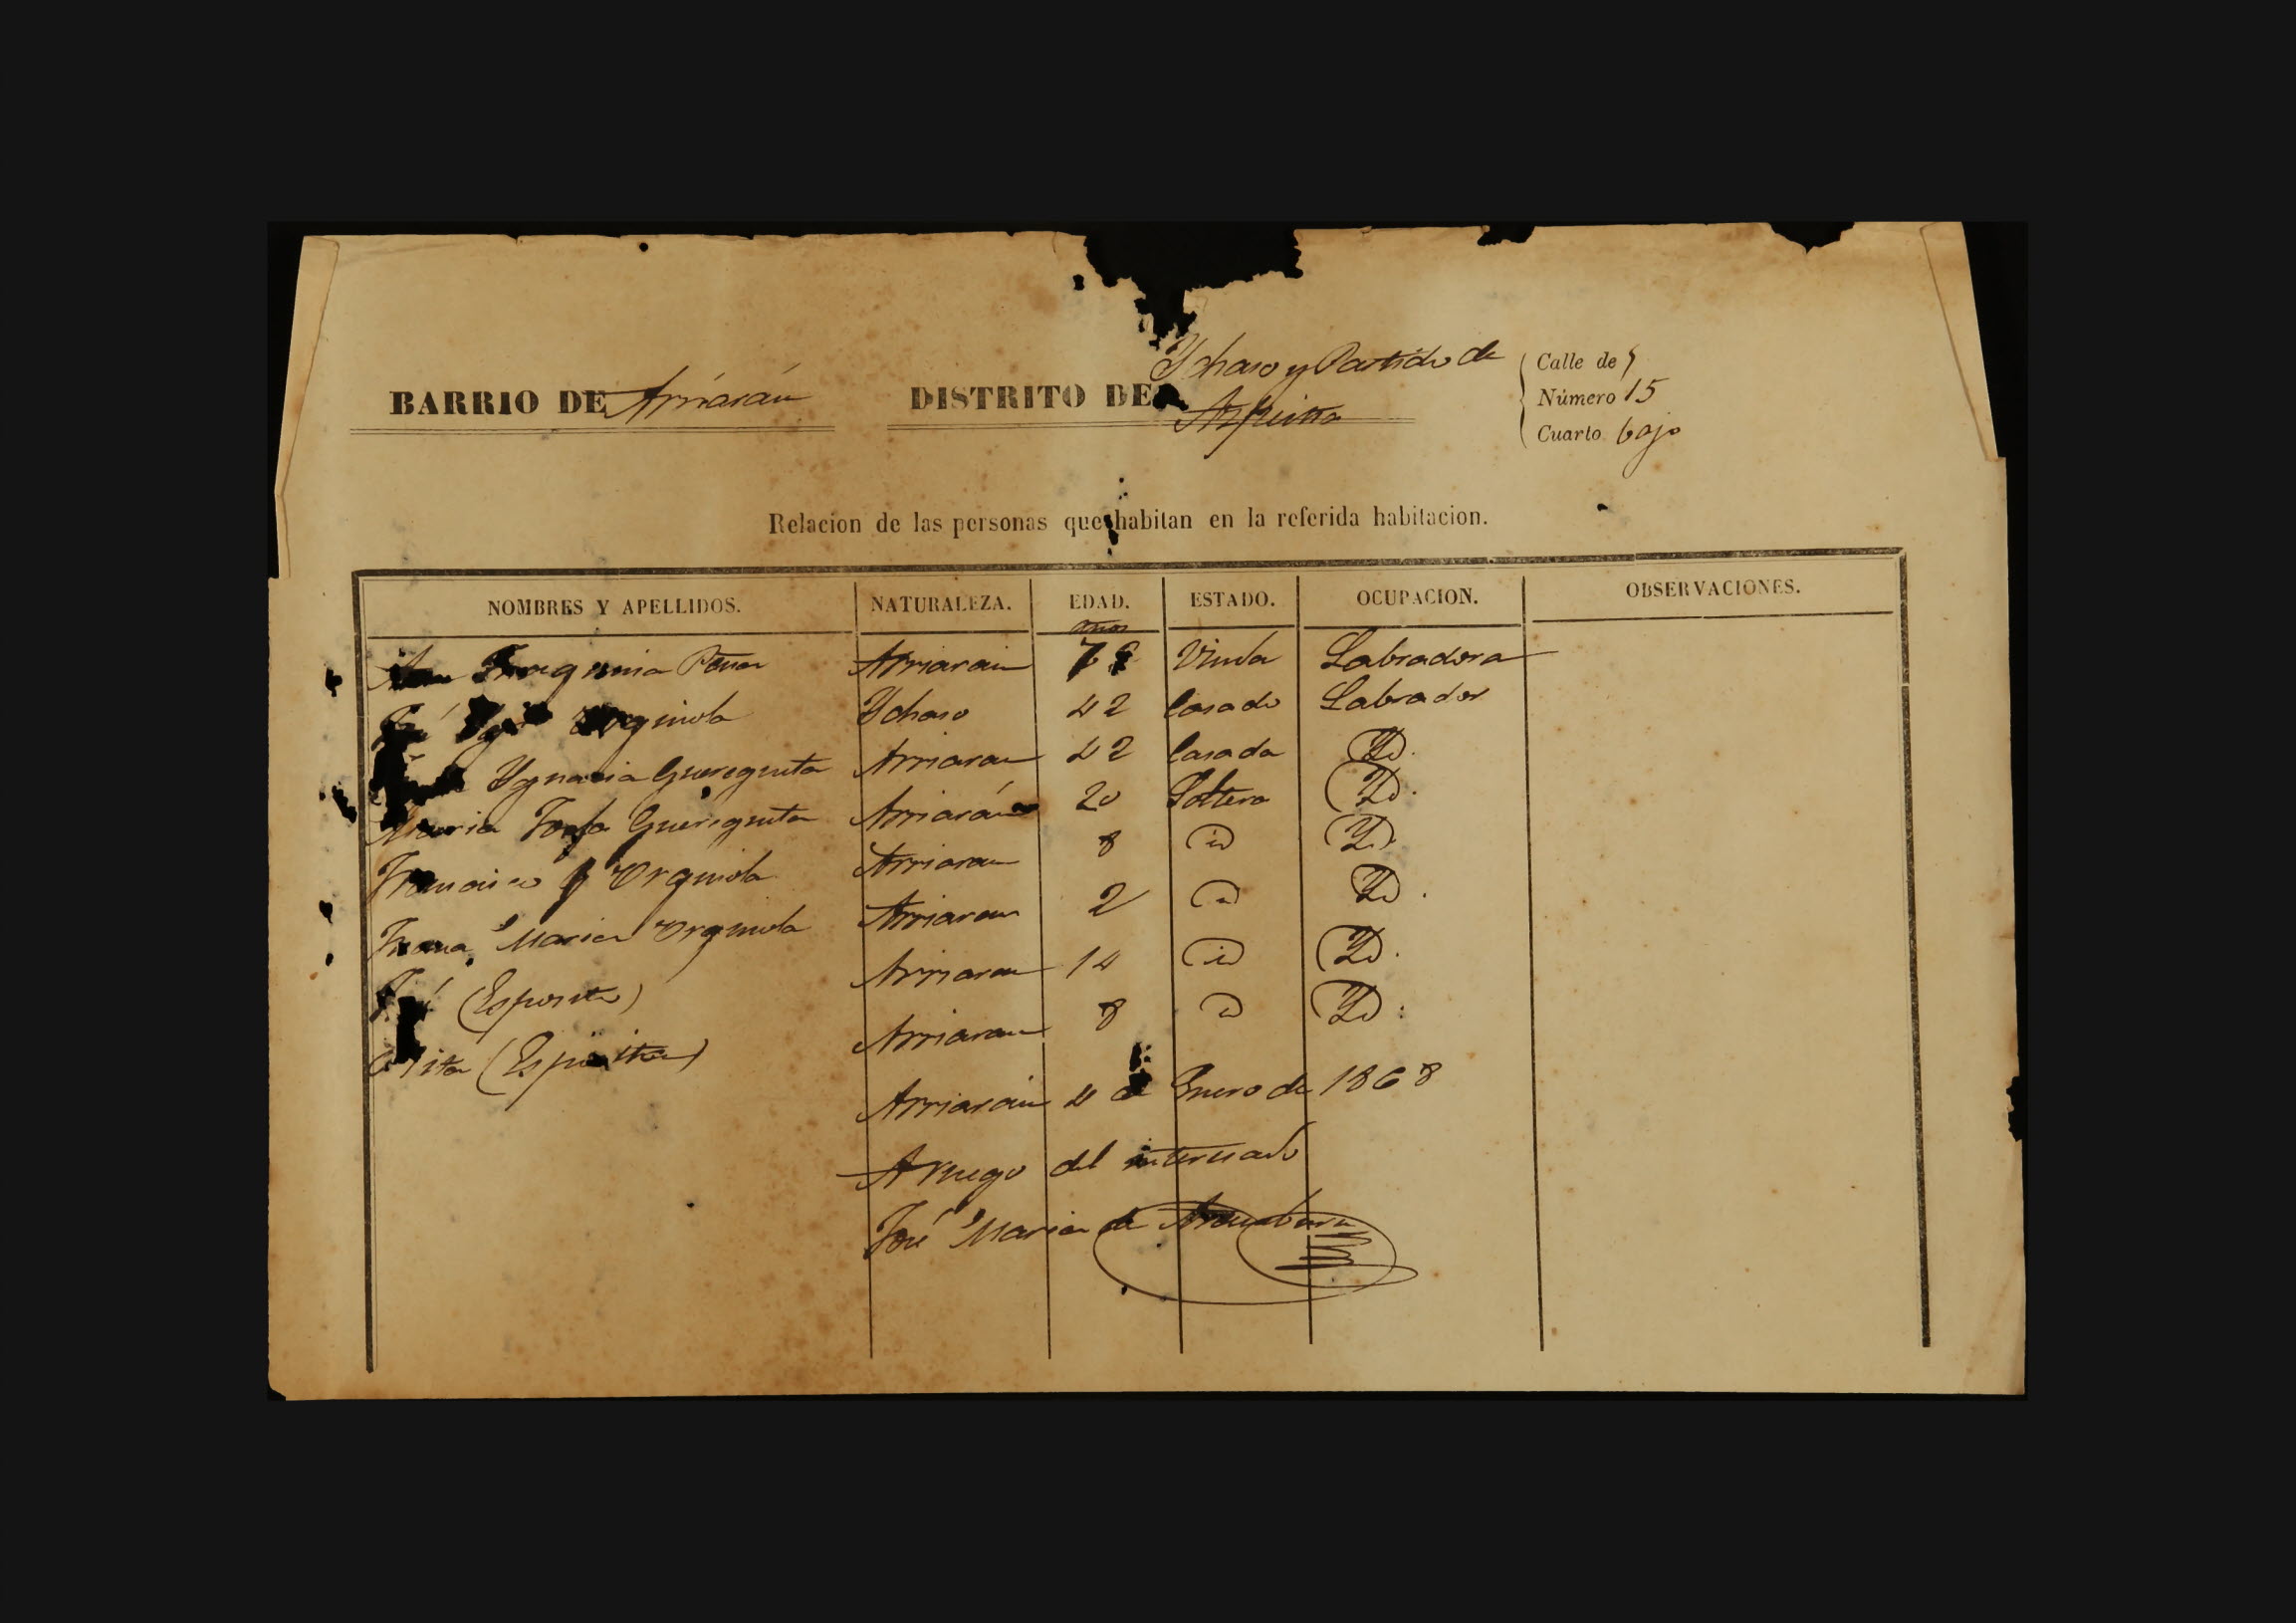 Ychaso y Partido de
BARRIO DE Arriarán DISTRITO DE Azpeitia
Calle de
Número 15
Cuarto bajo
Relacion de las personas que habitan en la referida habitacion.
NOMBRES Y APELLIDOS. NATURALEZA. EDAD. ESTADO. OCUPACION. OBSERVACIONES.
años
Arriaran Viuda Labradora
Ychaso 42 Casado Labrador
Ygnacia Guereguita Arriaran 42 Casada Yd.
Maria Josefa Guereguita Arriarán 20 Soltera Yd.
Francisco Orquiola Arriaran 8 id Yd.
Juana Maria Orquiola Arriaran 2 id Yd.
José (Esposito) Arriaran 14 id Yd.
(Esposita) Arriaran 8 id Yd.
Arriarán 4 de Enero de 1868
A ruego del interesado
José Maria de Aramburu